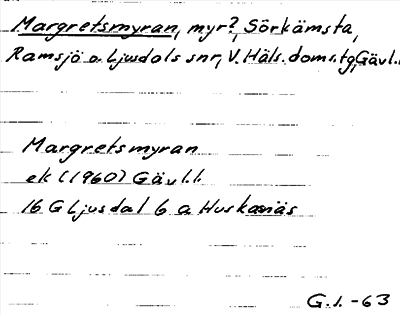 Margretsmyran, myr?, Sörkämsta,
Ramsjö o. Ljusdals snr, V. Häls. doms.tg, Gävl.l.
Margretsmyran
ek (1960) Gävl.l.
16 G Ljusdal 6 a Huskasnäs
G.I. -63